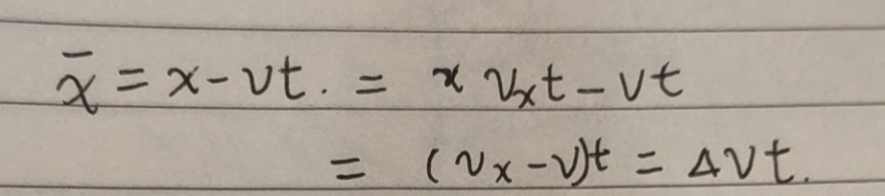 x̄ = x - vt. = x vₓt - vt
= (vₓ - v)t = Δvt.